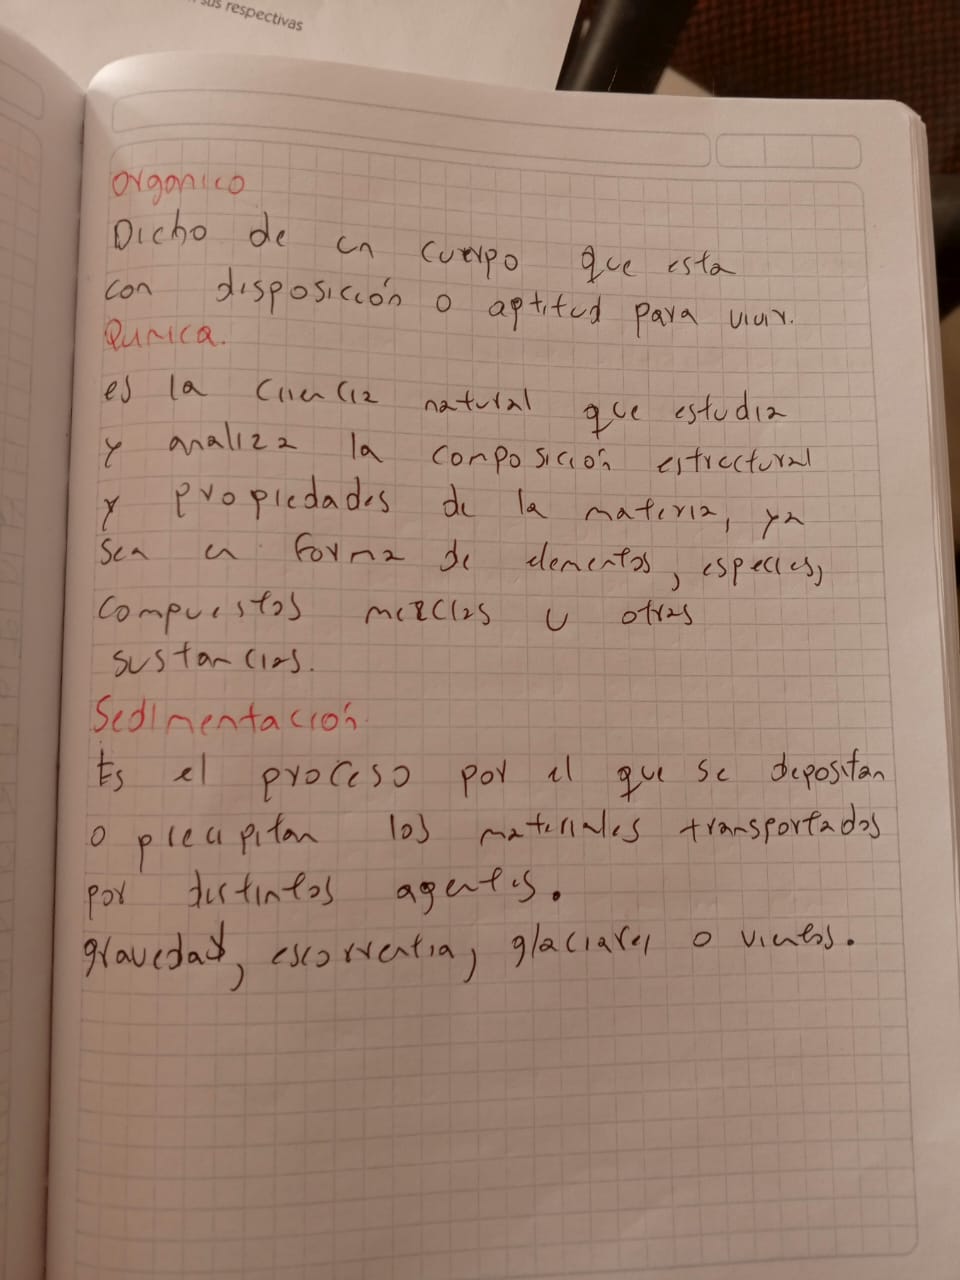 sus respectivas
Organico
Dicho de un cuerpo que esta
con disposición o aptitud para vivir.
Quimica.
es la ciencia natural que estudia
y analiza la composición estructural
y propiedades de la materia, ya
sea en forma de elementos, especies,
compuestos mezclas u otras
sustancias.
Sedimentación.
Es el proceso por el que se depositan
o precipitan los materiales transportados
por distintos agentes.
gravedad, escorrentia, glaciares o vientos.